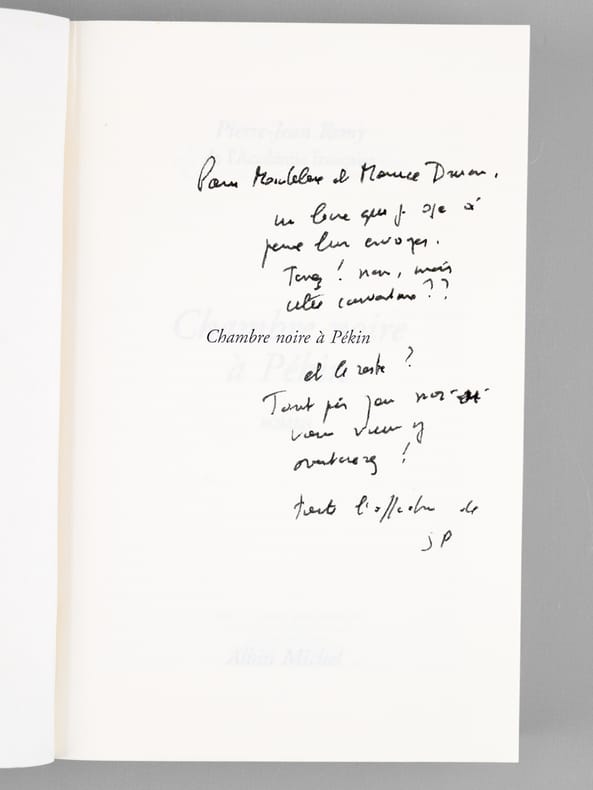 Pour Madeleine et Maurice Druon,
un livre que j'ose à
peine leur envoyer.
Tenez ! non, mais
cette couverture ??
Chambre noire à Pékin
et le reste ?
Tant pis
vous
y
aventurerez !
toute l'affection de
JP
Pierre-Jean Remy
de l'Académie française
Chambre noire
à Pékin
Albin Michel